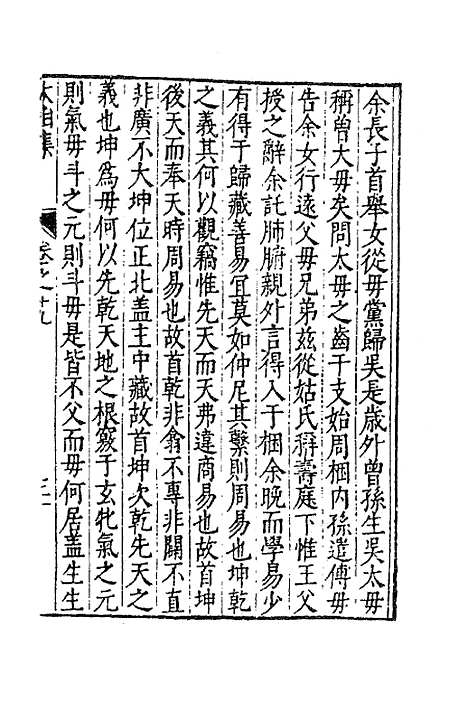 余長子首舉女從毋黨歸吳是歲外曾孫生吳太毋
稱曾大毋矣問太毋之齒干支始周梱內孫遣傅毋
告余女行遠父毋兄弟兹從姑氏稱壽庭下惟王父
授之辭余託肺腑親外言得入于梱余晚而學易少
有得于歸藏善易宜莫如仲尼其繫則周易也坤乾
之義其何以觀竊惟先天而天弗違商易也故首坤
後天而奉天時周易也故首乾非翕不專非闢不直
非廣不大坤位正北盖主中藏故首坤次乾先天之
義也坤為毋何以先乾天地之根竅于玄牝氣之元
則氣毋斗之元則斗毋是皆不父而毋何居盖生生
太函集
卷之十九